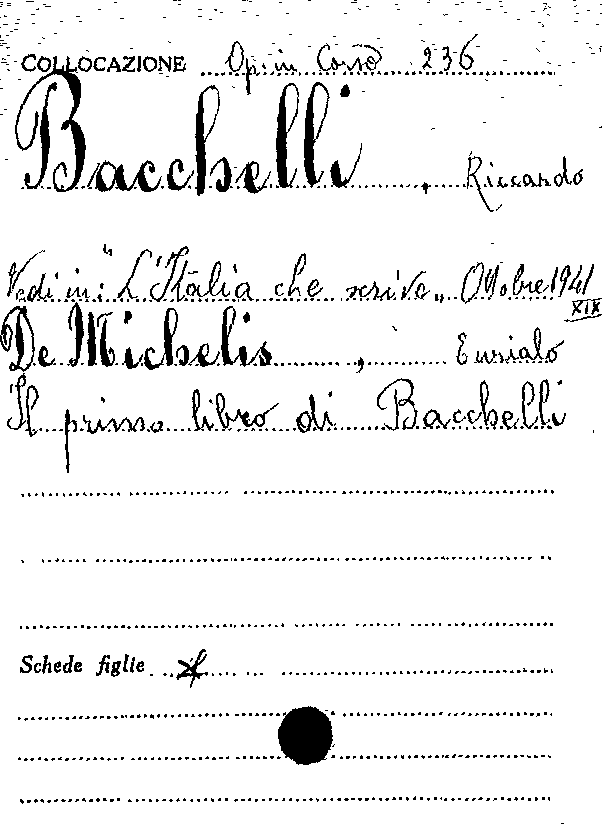 COLLOCAZIONE Op. in Corso 236
Bacchelli, Riccardo
Vedi in: "L'Italia che scrive" Ottobre 1941
XIX
De Michelis, Eurialo
Il primo libro di Bacchelli
Schede figlie